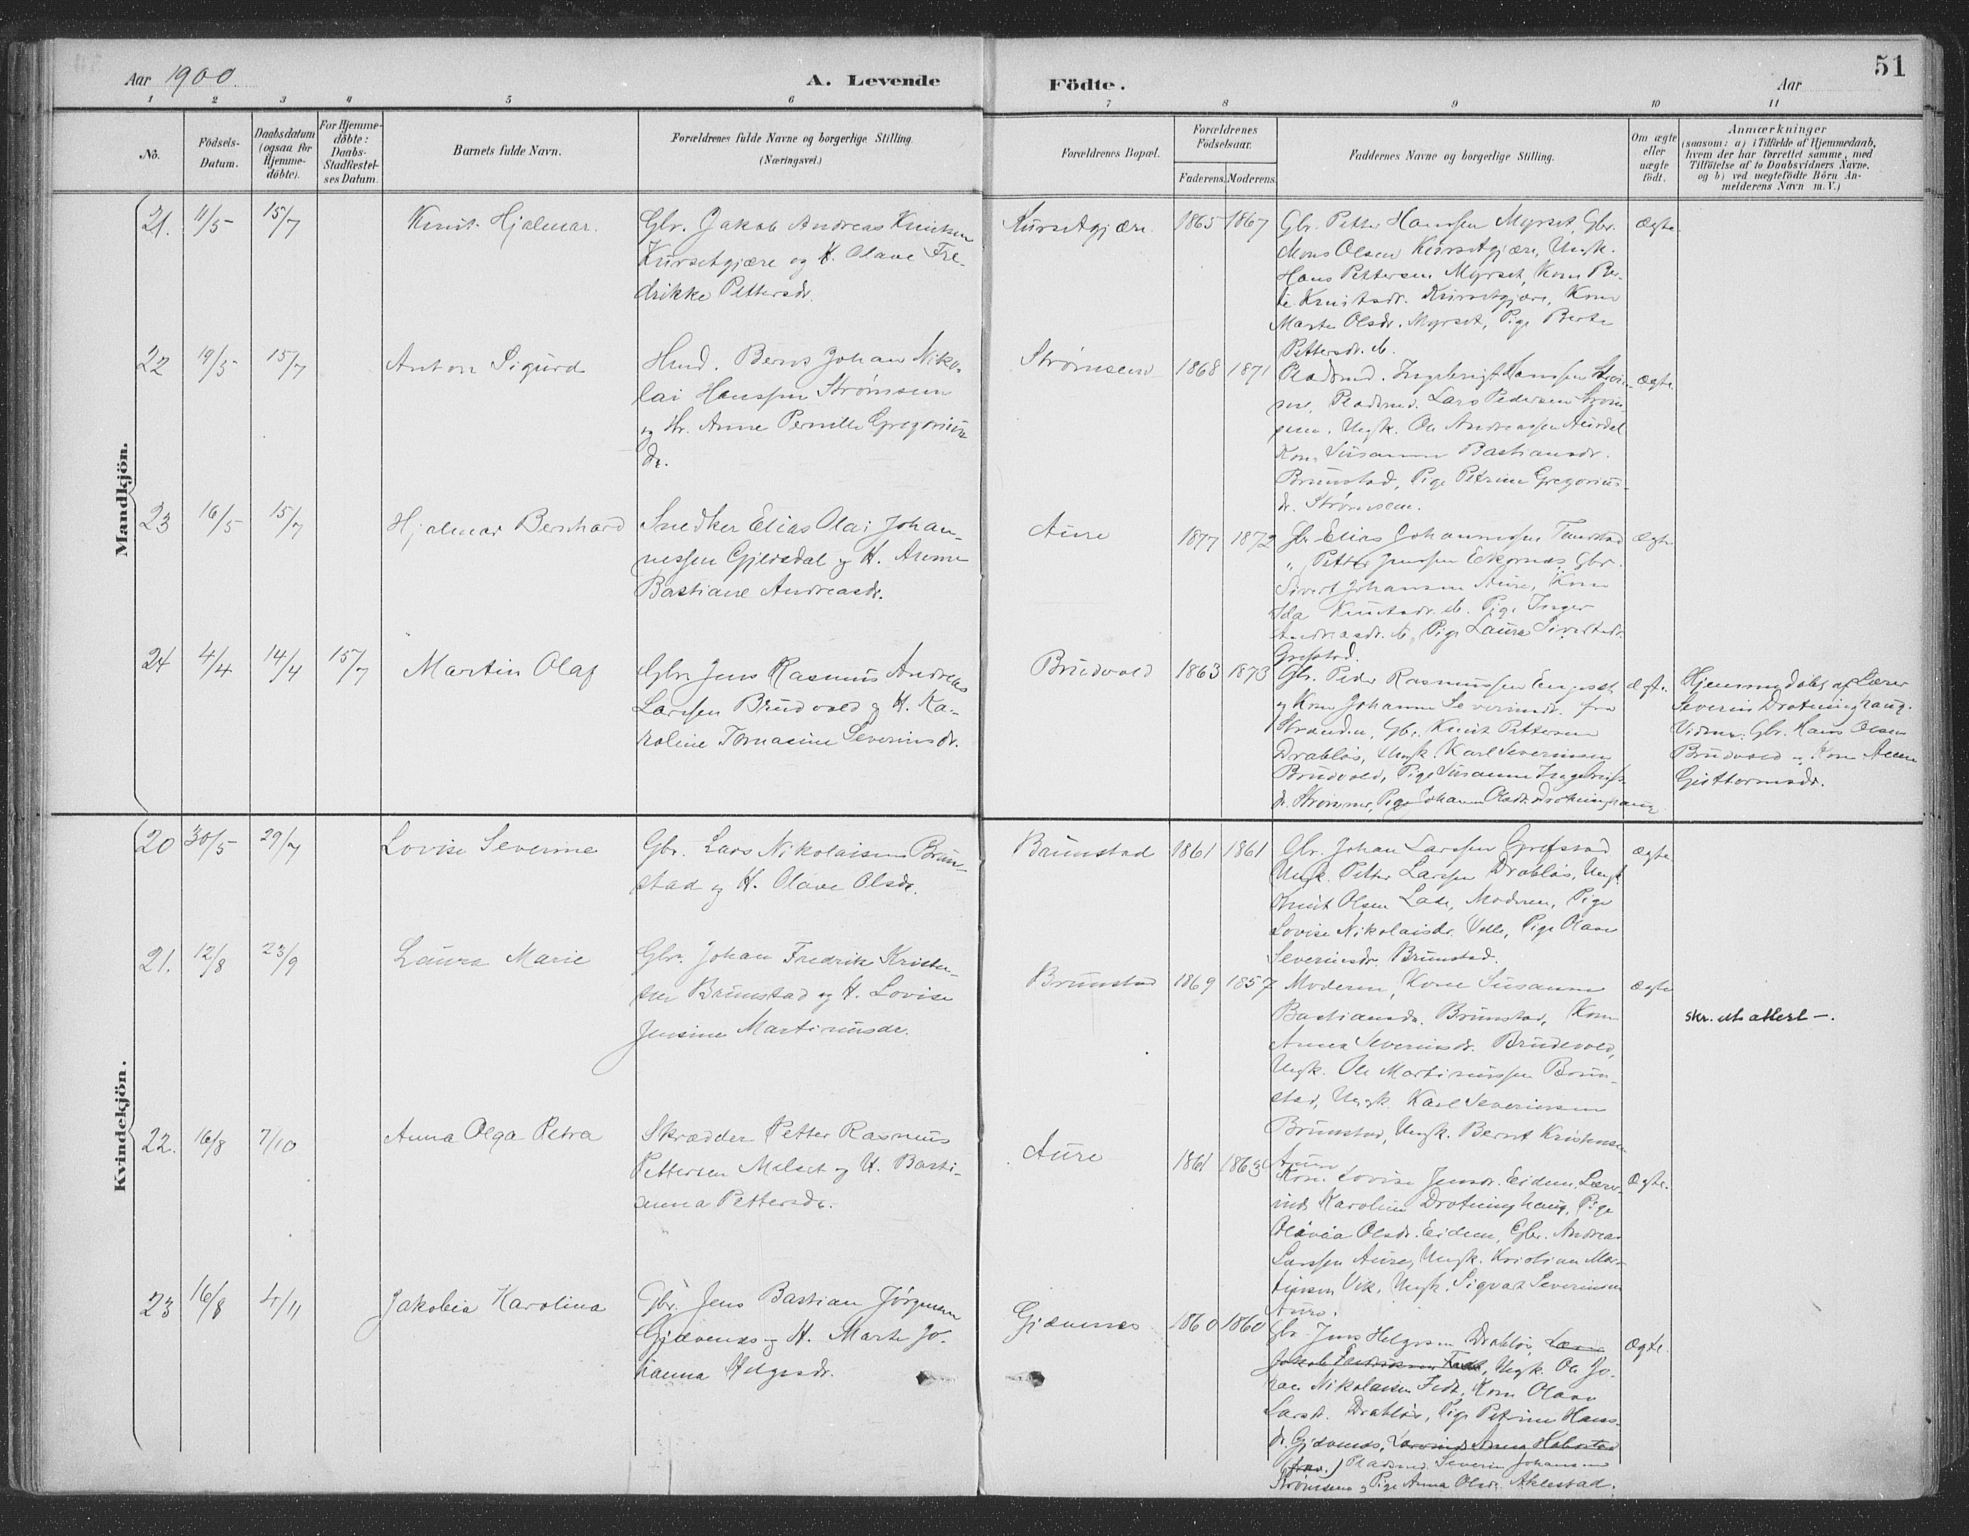 51
Aar 1900.
A. Levende
Födte.
Aar
1 2 3 4 5 6 7 8 9 10 11
No.
Födsels-
Datum.
Daabsdatum
(ogsaa for
Hjemme-
döbte).
For Hjemme-
döbte:
Daabs-
Stadfæstel-
ses Datum.
Barnets fulde Navn.
Forældrenes fulde Navne og borgerlige Stilling.
(Næringsvei.)
Forældrenes Bopæl.
Forældrenes
Födselsaar.
Faderens. Moderens.
Faddernes Navne og borgerlige Stilling.
Om ægte
eller
uægte
födt.
Anmærkninger
(saasom: a) i Tilfælde af Hjemmedaab,
hvem der har forrettet samme, med
Tilföielse af to Daabsvidners Navne.
og b) ved uægtefödte Börn An-
melderens Navn m. V.)
Mandkjön.
21. 11/5 15/7
Knut Hjalmar.
Gbr. Jakob Andreas Knutsen
Kursetgjære og H. Olave Fre-
drikke Pettersdr.
Kursetgjære. 1865 1867
Gbr. Petter Hanssen Myrset, Gbr.
Mons Olsen Kursetgjære, Ungk.
Hans Pettersen Myrset, Kone Ber-
te Knutsdr. Kursetgjære, Kone
Marte Olsdr. Myrset, Pige Berte
Pettersdr. ib.
Ægte
22 19/5 15/7
Anton Sigurd
Hmd. Bernt Johan Niko-
lai Hanssen Strømsem
og H. Anne Pernille Gregorius
dr.
Strømsem 1868 1871
Pladsmd. Ingebrigt Hanssen Strøm-
sem, Pladsmd. Lars Pedersen Strøm-
sem, Ungk. Ole Andreassen Aurdal
Kone Susanne Bastiansdr.
Brunstad, Pige Petrine Gregorius-
dr. Strømsem.
Ægte
23 16/5 15/7
Hjalmar Bernhard
Snedker Elias Olai Johan-
nessen Gjelsdal og H. Anne
Bastiane Andreasdr.
Aure 1877 1872
Gbr Elias Johannessen Tandstad
" Petter Jenssen Ekornæs, Gbr.
Sivert Johansen Aure, Kone
Ida Knutsdr. ib. Pige Inger
Andreasdr. ib, Pige Laura Sivertsdr.
Grefstad.
Ægte
24 4/4 14/4 15/7
Martin Olaf
Gbr. Jens Rasmus Andreas
Larssen Brudvold og H. Ka-
roline Tomasine Severinsdr.
Brudvold 1863 1873
Gbr. Peder Rasmussen Engeset
og Kone Johanne Severinsdr. fra
Stranden, Gbr. Knut Pettersen
Drabløs, Ungk. Karl Severinsen
Brudvold, Pige Susanne Ingebrigts-
dr. Strømmen, Pige Johanne Olsdr. Drotninghaug
Ægte.
Hjemmedøbt af Lærer
Severin Drotninghaug.
Vidner: Gbr. Hans Olsen
Brudvold og Kone Anne
Guttormsdr.
Kvindekjön.
20 30/5 29/7
Lovise Severine
Gbr. Lars Nikolaisen Brun-
stad og H. Olave Olsdr.
Brunstad 1861 1861
Gbr. Johan Larssen Grefstad
Ungk. Petter Larssen Drabløs, Ungk
Knut Olsen Lade, Moderen, Pige
Lovise Nikolaisdr. Velle, Pige Olave
Severinsdr. Brunstad.
Ægte
21. 12/8 23/9
Laura Marie
Gbr. Johan Fredrik Kristen-
sen Brunstad og H. Lovise
Jensine Martinusdr.
Brunstad 1869 1857
Moderen, Kone Susanne
Bastiansdr. Brunstad, Kone
Anna Severinsdr. Brudevold,
Ungk. Ole Martinussen Brun-
stad, Ungk. Karl Severinsen
Brunstad, Ungk. Bernt Kristensen
Aure
Ægte
skr. utattest —.
22. 16/8 7/10
Anna Olga Petra
Skrædder Petter Rasmus
Pettersen Melset og H. Basti-
anna Pettersdr.
Aure 1861 1863
Kone Lovise Jensdr. Eidem, Lærer-
inde Karoline Drotninghaug, Pige
Olavia Olsdr. Eidem, Gbr. Andreas
Larssen Aure, Ungk. Kristian Mar-
tinsen Vik, Ungk. Sigvat Severinsen
Aure.
Ægte.
23 16/8 4/11
Jakobia Karolina
Gbr. Jens Bastian Jørgensen
Gjævenæs og H. Marte Jo-
hanna Helgesdr.
Gjævenæs 1860 1860
Gbr. Jens Helgesen Drabløs,
Ungk. Ole Jo-
han Nikolaisen Fedt, Kone Olave
Larsdr. Drabløs, Pige Petrine Hans-
dr. Gjævenæs,
Pladsmd. Severin Johansen
Strømsem og Pige Anna Olsdr. Aklestad.
Ægte.